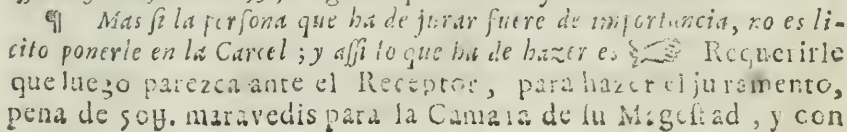 ¶ Mas ſi la perſona que ha de jurar fuere de importancia, no es li-
cito ponerle en la Carcel ; y aſſi lo que ha de hazer es ☞ Requerirle
que luego parezca ante el Receptor , para hazer el juramento,
pena de 50U. maravedis para la Camara de ſu Mageſtad , y con